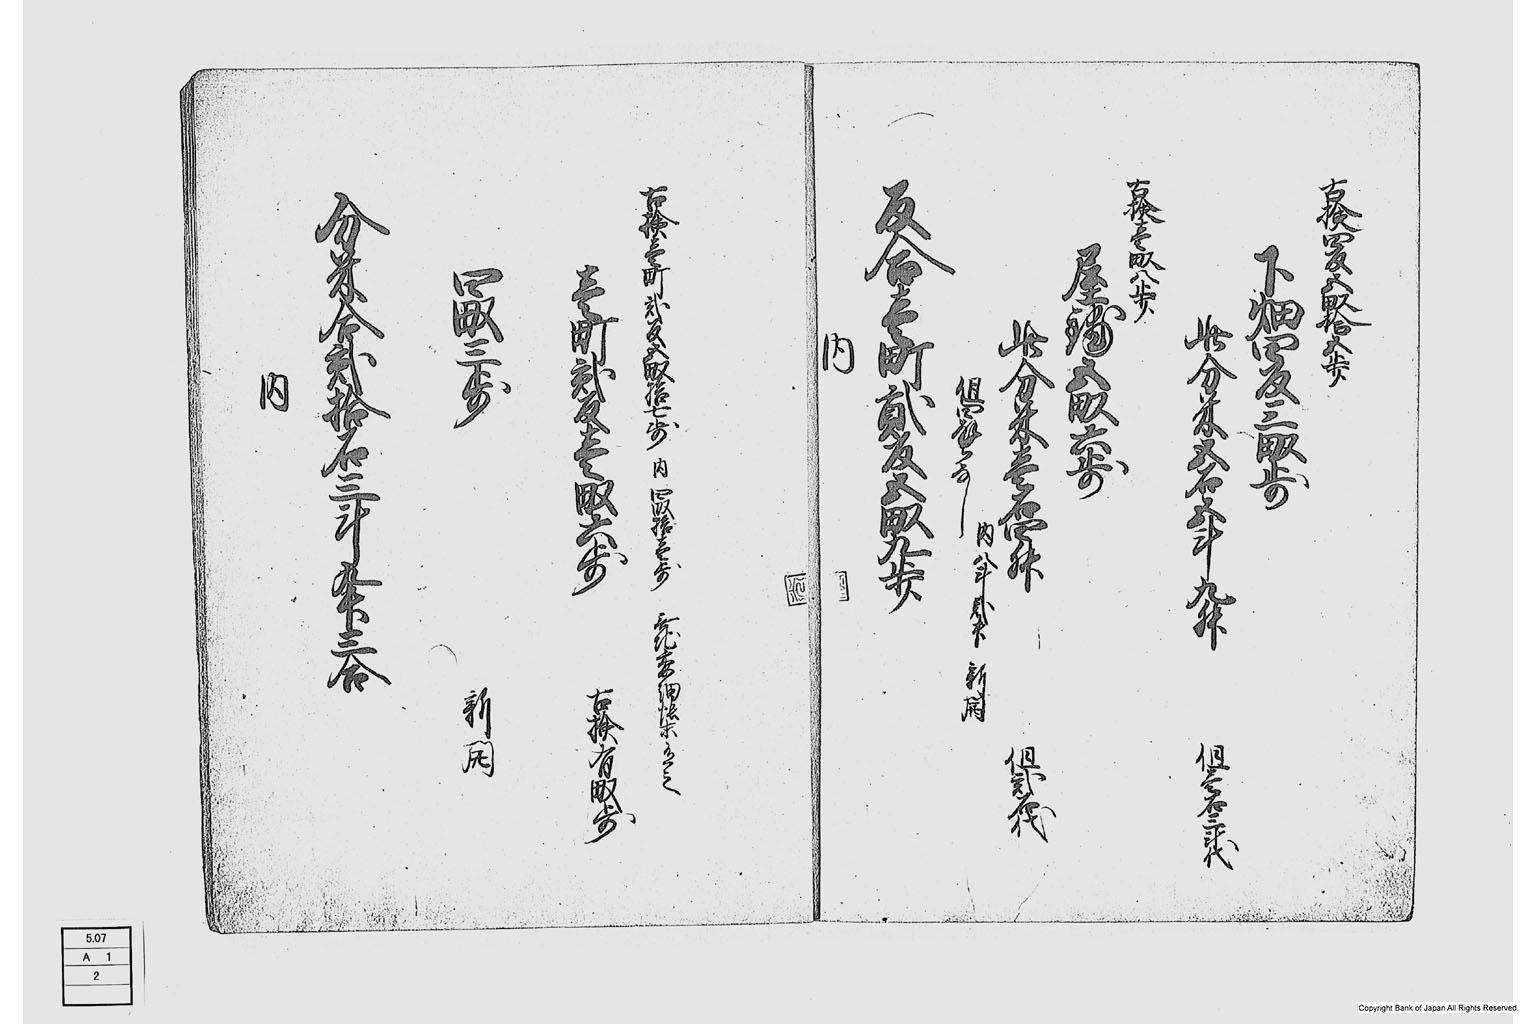 古検四反五畝拾五歩
下畑四反三畝歩
此分米五石五斗九升
但壱石三斗代
古検壱畝八歩
屋敷五畝六歩
此分米壱石四升
但弐石代
内八斗弐升 新開
反合壱町弐反五畝九歩
内
古検壱町弐反五畝拾七歩 内 四畝拾壱歩
壱町弐反壱畝六歩
古検有畝歩
四畝三歩
新開
分米合弐拾石三斗九升三合
内
5.07
A 1
2
Copyright Bank of Japan All Rights Reserved.